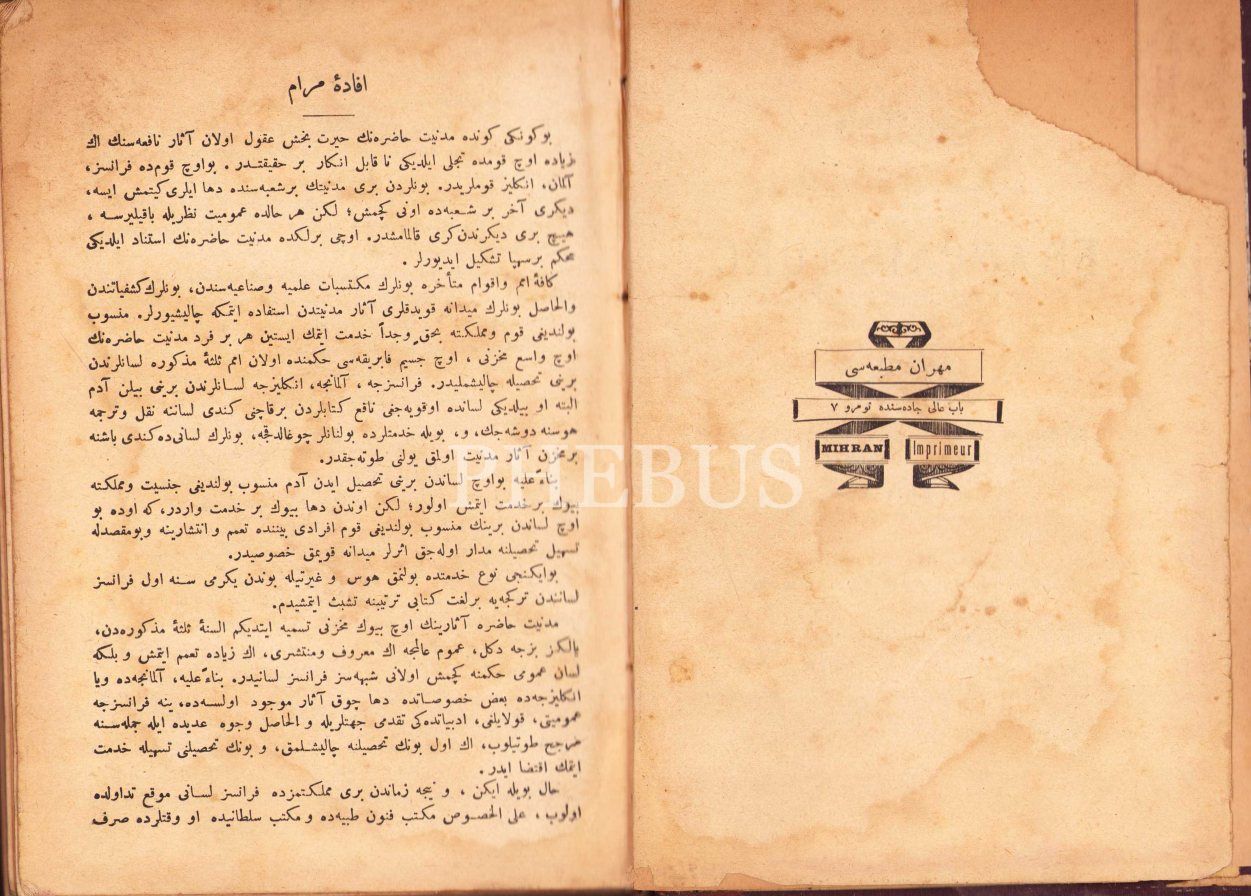 مهران مطبعه‌سی
باب عالی جاده‌سنده نومرو ٧
MIHRAN Imprimeur
افادهٔ مرام
بوكونكی كونده مدنیت حاضره‌نك حیرت بخش عقول اولان آثار نافعه‌سنك اك
زیاده اوچ قومده تجلی ایلدیكی نا قابل انكار بر حقیقتدر . بواوچ قوم‌ده فرانسز،
آلمان، انكلیز قوملریدر. بونلردن بری مدنیتك برشعبه‌سنده دها ایلری كیتمش ایسه،
دیكری آخر بر شعبه‌ده اونی كچمش؛ لكن هر حالده عمومیت نظریله باقیلیرسه ،
هیچ بری دیكرندن كری قالمامشدر. اوچی برلكده مدنیت حاضره‌نك استناد ایلدیكی
محكم برسهپا تشكیل ایدیورلر .
كافهٔ امم واقوام متأخره بونلرك مكتسبات علمیه وصناعیه‌سندن، بونلرك كشفیاتندن
والحاصل بونلرك میدانه قویدقلری آثار مدنیتدن استفاده ایتمكه چالیشیورلر. منسوب
بولندیغی قوم ومملكته بحق وجداً خدمت ایتمك ایستین هر بر فرد مدنیت حاضره‌نك
اوچ واسع مخزنی ، اوچ جسیم فابریقه‌سی حكمنده اولان امم ثلثهٔ مذكوره لسانلرندن
برینی تحصیله چالیشملیدر. فرانسزجه ، آلمانجه، انكلیزجه لسانلرندن برینی بیلن آدم
البته او بیلدیكی لسانده اوقویه‌جغی نافع كتابلردن برقاچنی كندی لساننه نقل وترجمه
هوسنه دوشه‌جك، و، بویله خدمتلرده بولنانلر چوغالدقجه، بونلرك لسانی‌ده كندی باشنه
برمخزن آثار مدنیت اولمق یولنی طوته‌جقدر.
بناءً علیه بواوچ لساندن برینی تحصیل ایدن آدم منسوب بولندیغی جنسیت ومملكته
بیوك برخدمت ایتمش اولور؛ لكن اوندن دها بیوك بر خدمت واردر، كه اوده بو
اوچ لساندن برینك منسوب بولندیغی قوم افرادی بیننده تعمم و انتشارینه وبومقصدله
تسهیل تحصیلنه مدار اوله‌جق اثرلر میدانه قویمق خصوصیدر.
بوایكنجی نوع خدمتده بولنمق هوس و غیرتیله بوندن یكرمی سنه اول فرانسز
لسانندن تركجه‌یه برلغت كتابی ترتیبنه تشبث ایتمشیدم.
مدنیت حاضره آثارینك اوچ بیوك مخزنی تسمیه ایتدیكم السنهٔ ثلثهٔ مذكوره‌دن،
یالكز بزجه دكل، عموم عالمجه اك معروف ومنتشری، اك زیاده تعمم ایتمش و بلكه
لسان عمومی حكمنه كچمش اولانی شبهه‌سز فرانسز لسانیدر. بناءً علیه، آلمانجه‌ده ویا
انكلیزجه‌ده بعض خصوصاتده دها چوق آثار موجود اولسه‌ده، ینه فرانسزجه
عمومیتی، قولایلغی، ادبیاتده‌كی تقدمی جهتلریله و الحاصل وجوه عدیده ایله جمله‌سنه
ترجیح طوتیلوب، اك اول بونك تحصیلنه چالیشلمق، و بونك تحصیلنی تسهیله خدمت
ایتمك اقتضا ایدر .
حال بویله ایكن ، و نیجه زماندن بری مملكتمزده فرانسز لسانی موقع تداولده
اولوب ، علی الخصوص مكتب فنون طبیه‌ده و مكتب سلطانیده او وقتلرده صرف
PHEBUS